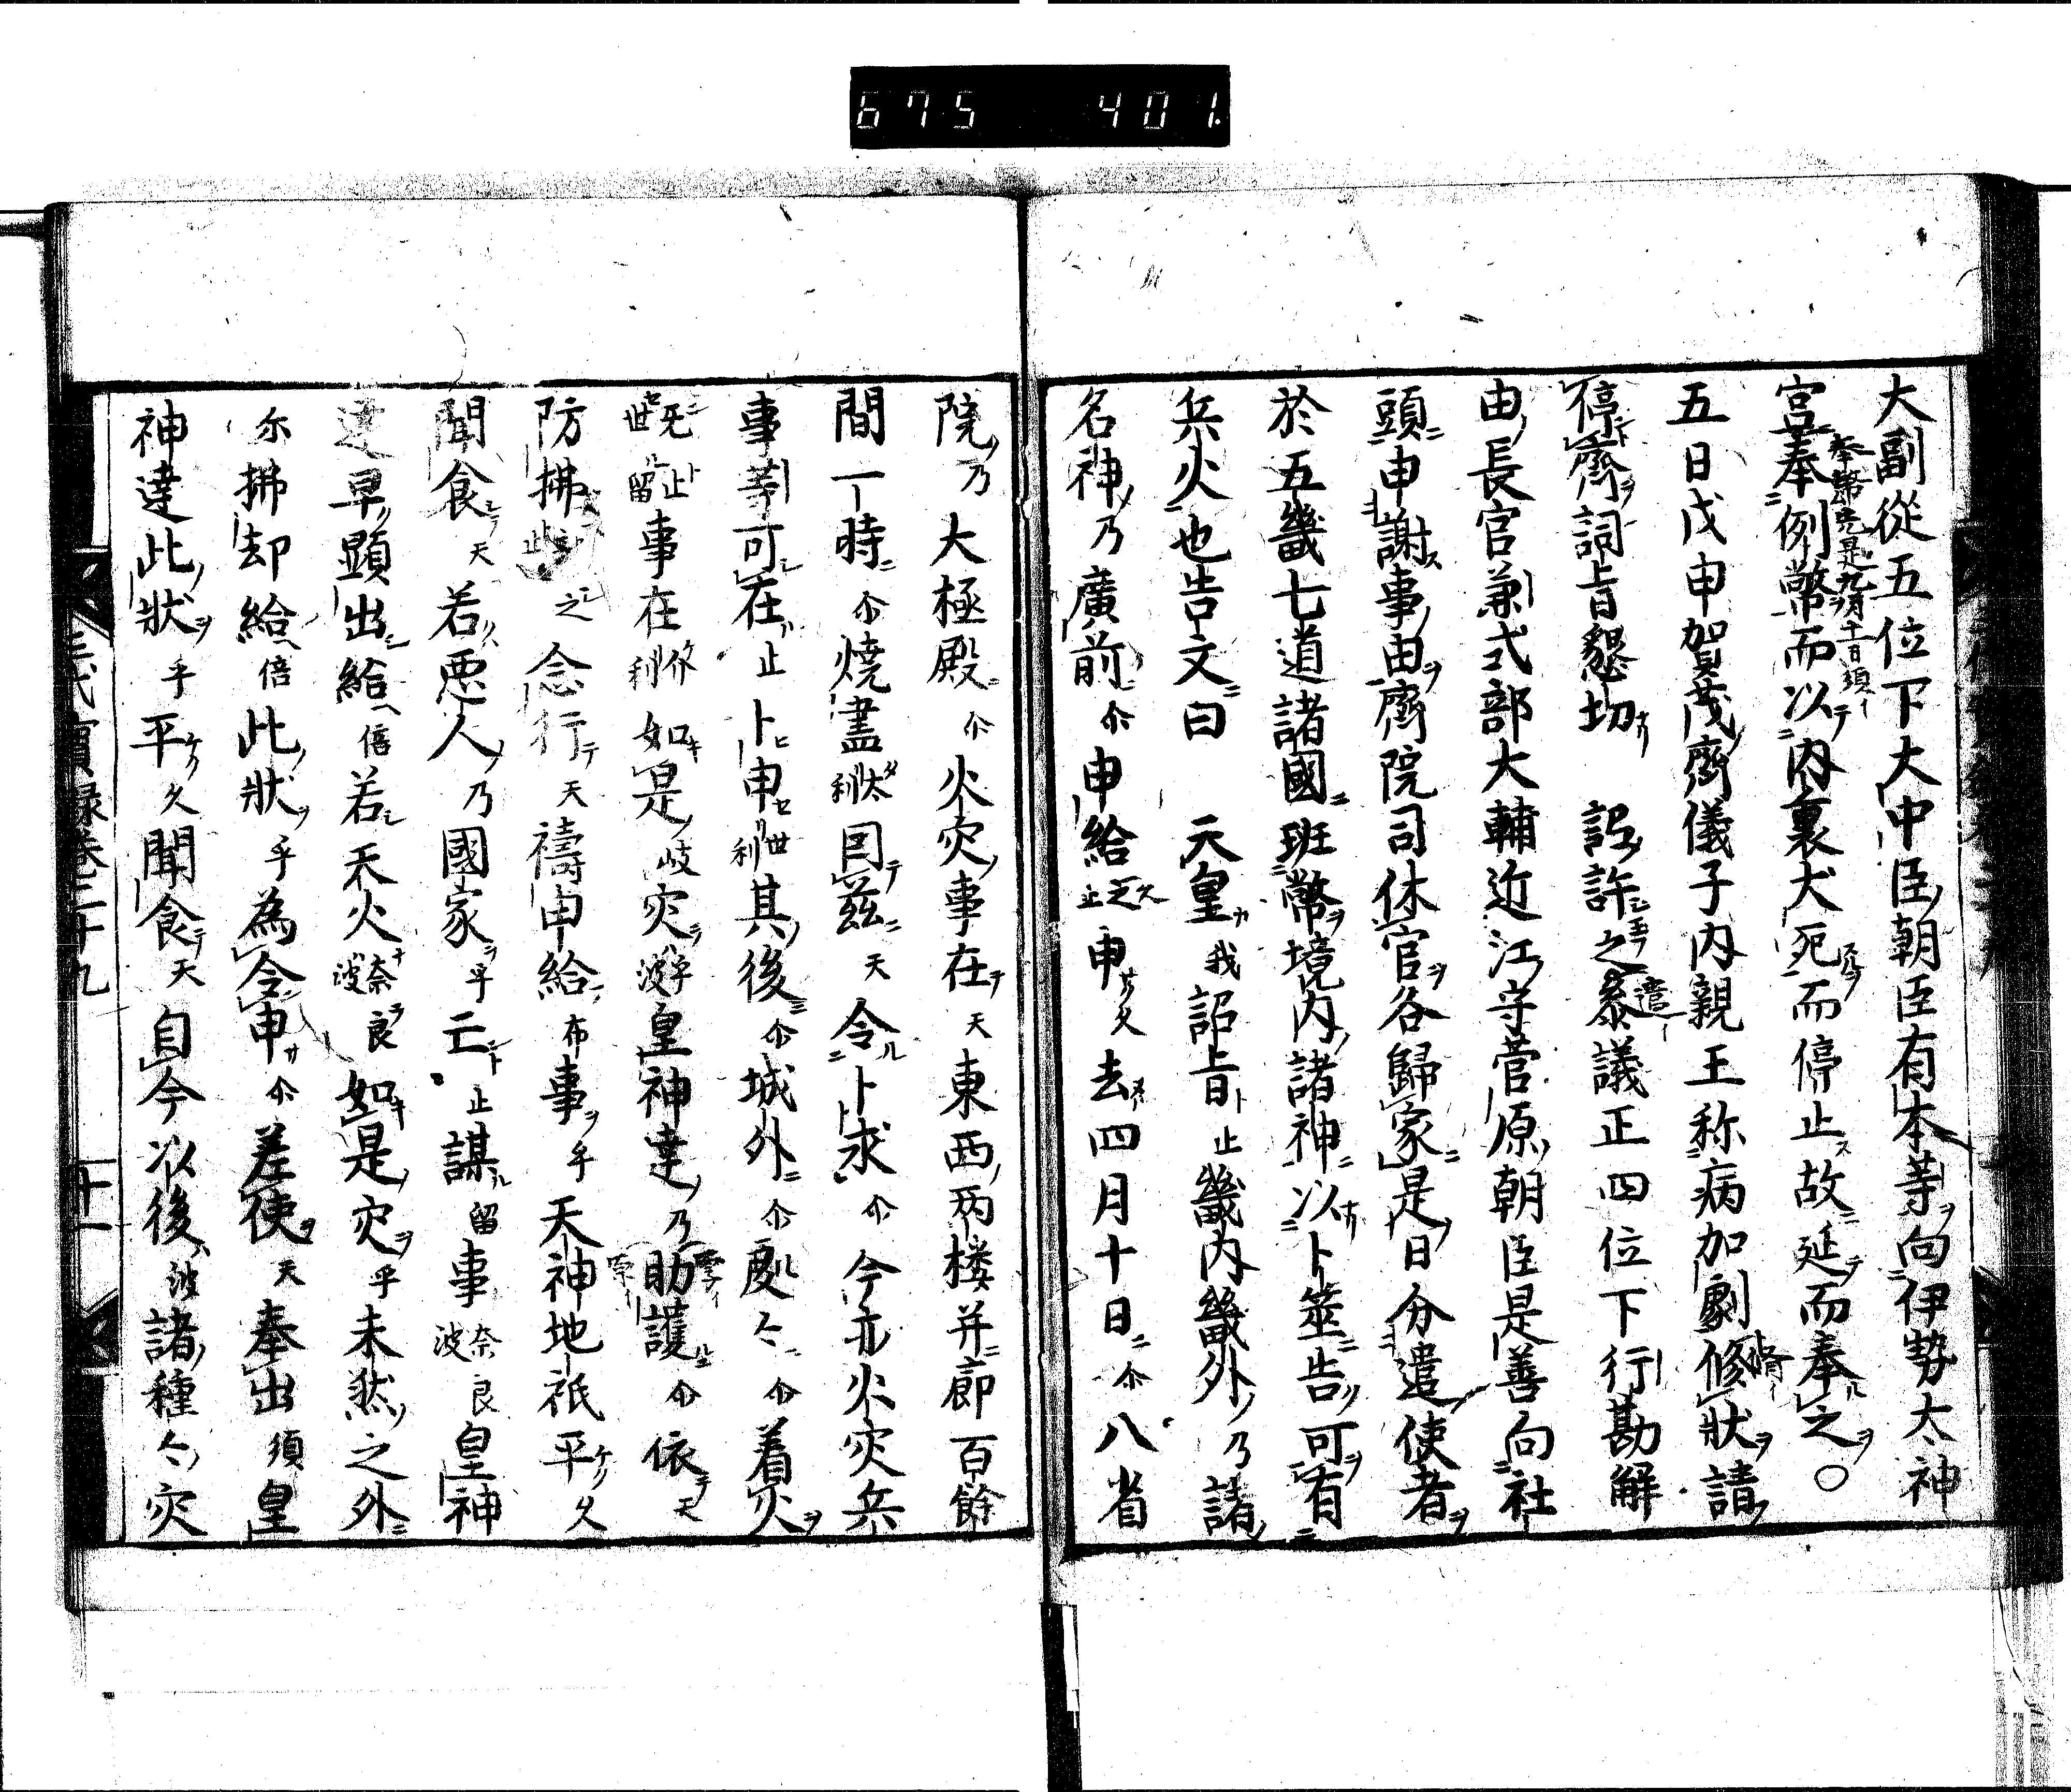 675 401.
大副從五位下大中臣朝臣有本等向伊勢太神
宮奉例幣而以内裏犬死而停止故延而奉之〇
五日戊申賀茂齋儀子内親王称病加劇修狀請
停齋詞旨懇切 詔許之參議正四位下行勘解
由長官兼式部大輔近江守菅原朝臣是善向社
頭申謝事由齋院司休官各歸家是日分遣使者
於五畿七道諸國班幣境内諸神以卜筮告可有
兵火也告文曰 天皇我詔旨止畿内畿外乃諸
名神乃廣前尓申給久止申久去四月十日尓八省
院乃大極殿尓火灾事在天東西两楼并廊百餘
間一時尓燒盡太利因茲天令卜求尓今亦火灾兵
事等可在止卜申世利其後尓城外尓處々尓着火
世留止事在利如是岐灾乎波皇神達乃助護尓依天
防拂之念行天禱申給布事乎天神地祇平久
聞食天若悪人乃國家乎亡止謀留事奈良波皇神
達早顕出給倍若天火奈良波如是灾乎未然之外
尓拂却給倍此狀乎為令申尓差使天奉出須皇
神達此狀乎平久聞食天自今以後波諸種々灾
三代實録卷二十九
十一